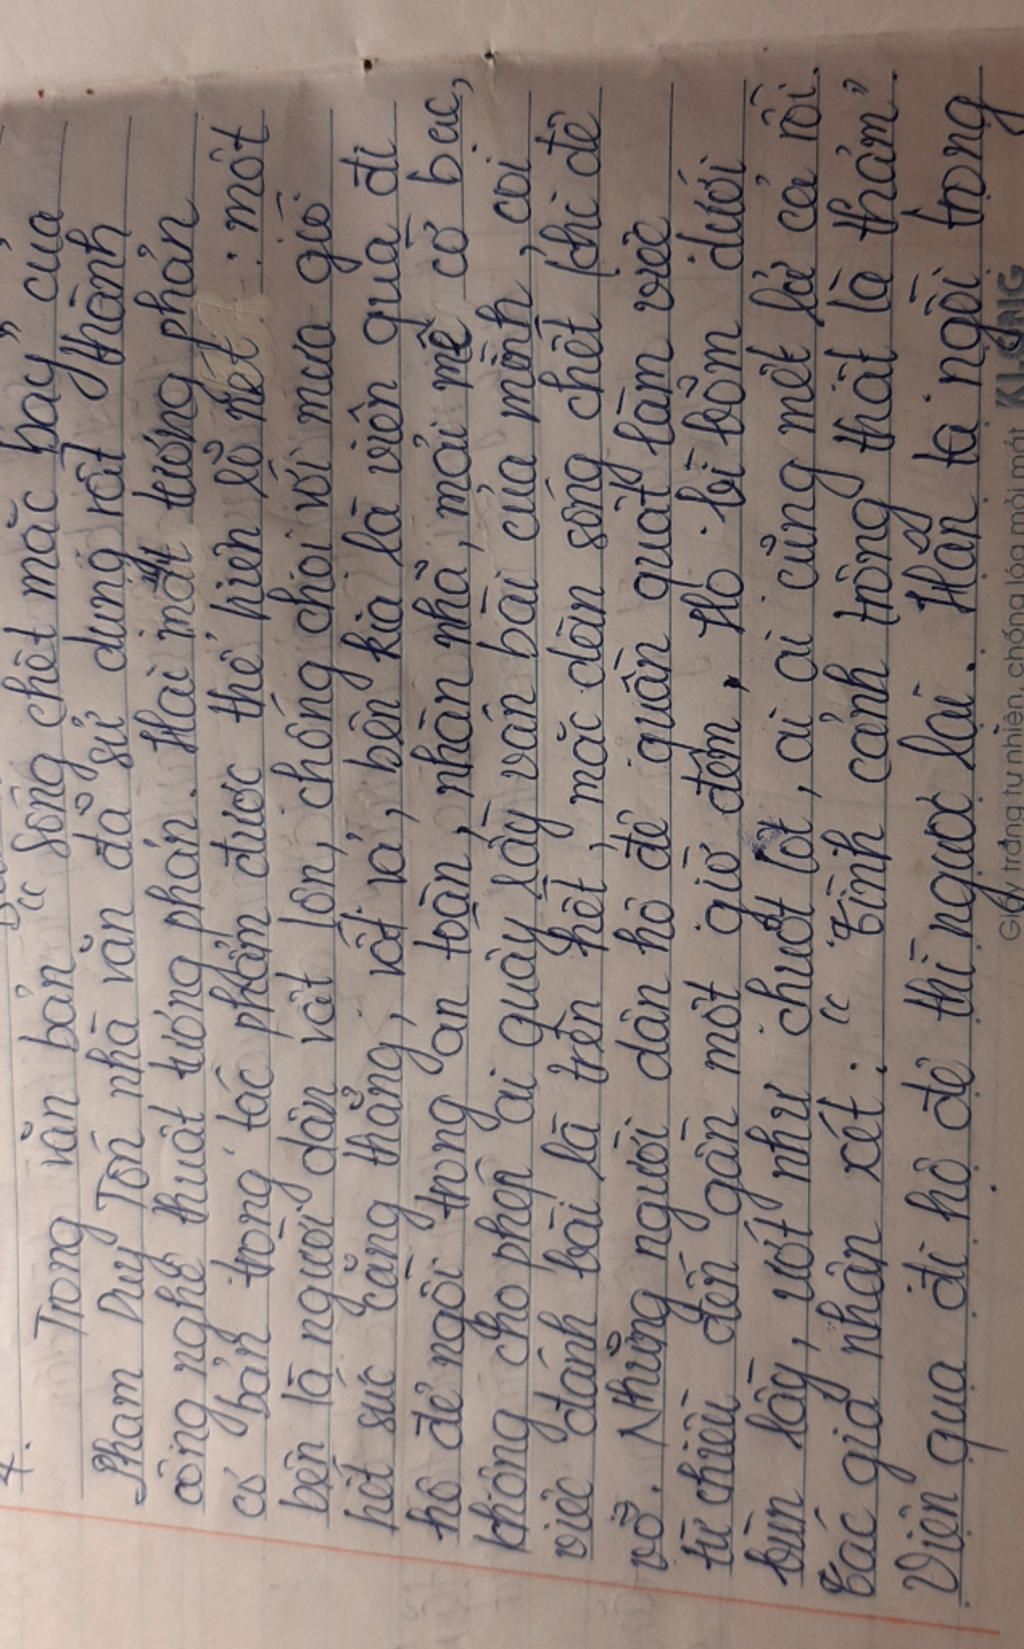 4.
Trong văn bản " Sống chết mặc bay" của
Phạm Duy Tốn nhà văn đã sử dụng rất thành
công nghệ thuật tương phản. Hai mặt tương phản
cơ bản trong tác phẩm được thể hiện lõ nét : một
bên là người dân vật lộn, chống chọi với mưa gió
hết sức căng thẳng, vất vả, bên kia là viên quan đi
hộ đê ngồi trong an toàn, nhàn nhã, mải mê cờ bạc,
không cho phép ai quấy lầy ván bài của mình, coi
việc đánh bài là trên hết, mặc dân sống chết khi đê
vỡ. Những người dân hộ đê quần quật làm việc
từ chiều đến gần một giờ đêm, Họ bì bõm dưới
bùn lầy, ướt như chuột lột, ai ai cũng mệt lả cả rồi.
Tác giả nhận xét: " Tình cảnh trông thật là thảm".
Viên quan đi hộ đê thì ngược lại. Hắn ta ngồi trong
Giấy trắng tự nhiên, chống lóa mỏi mắt KLONG